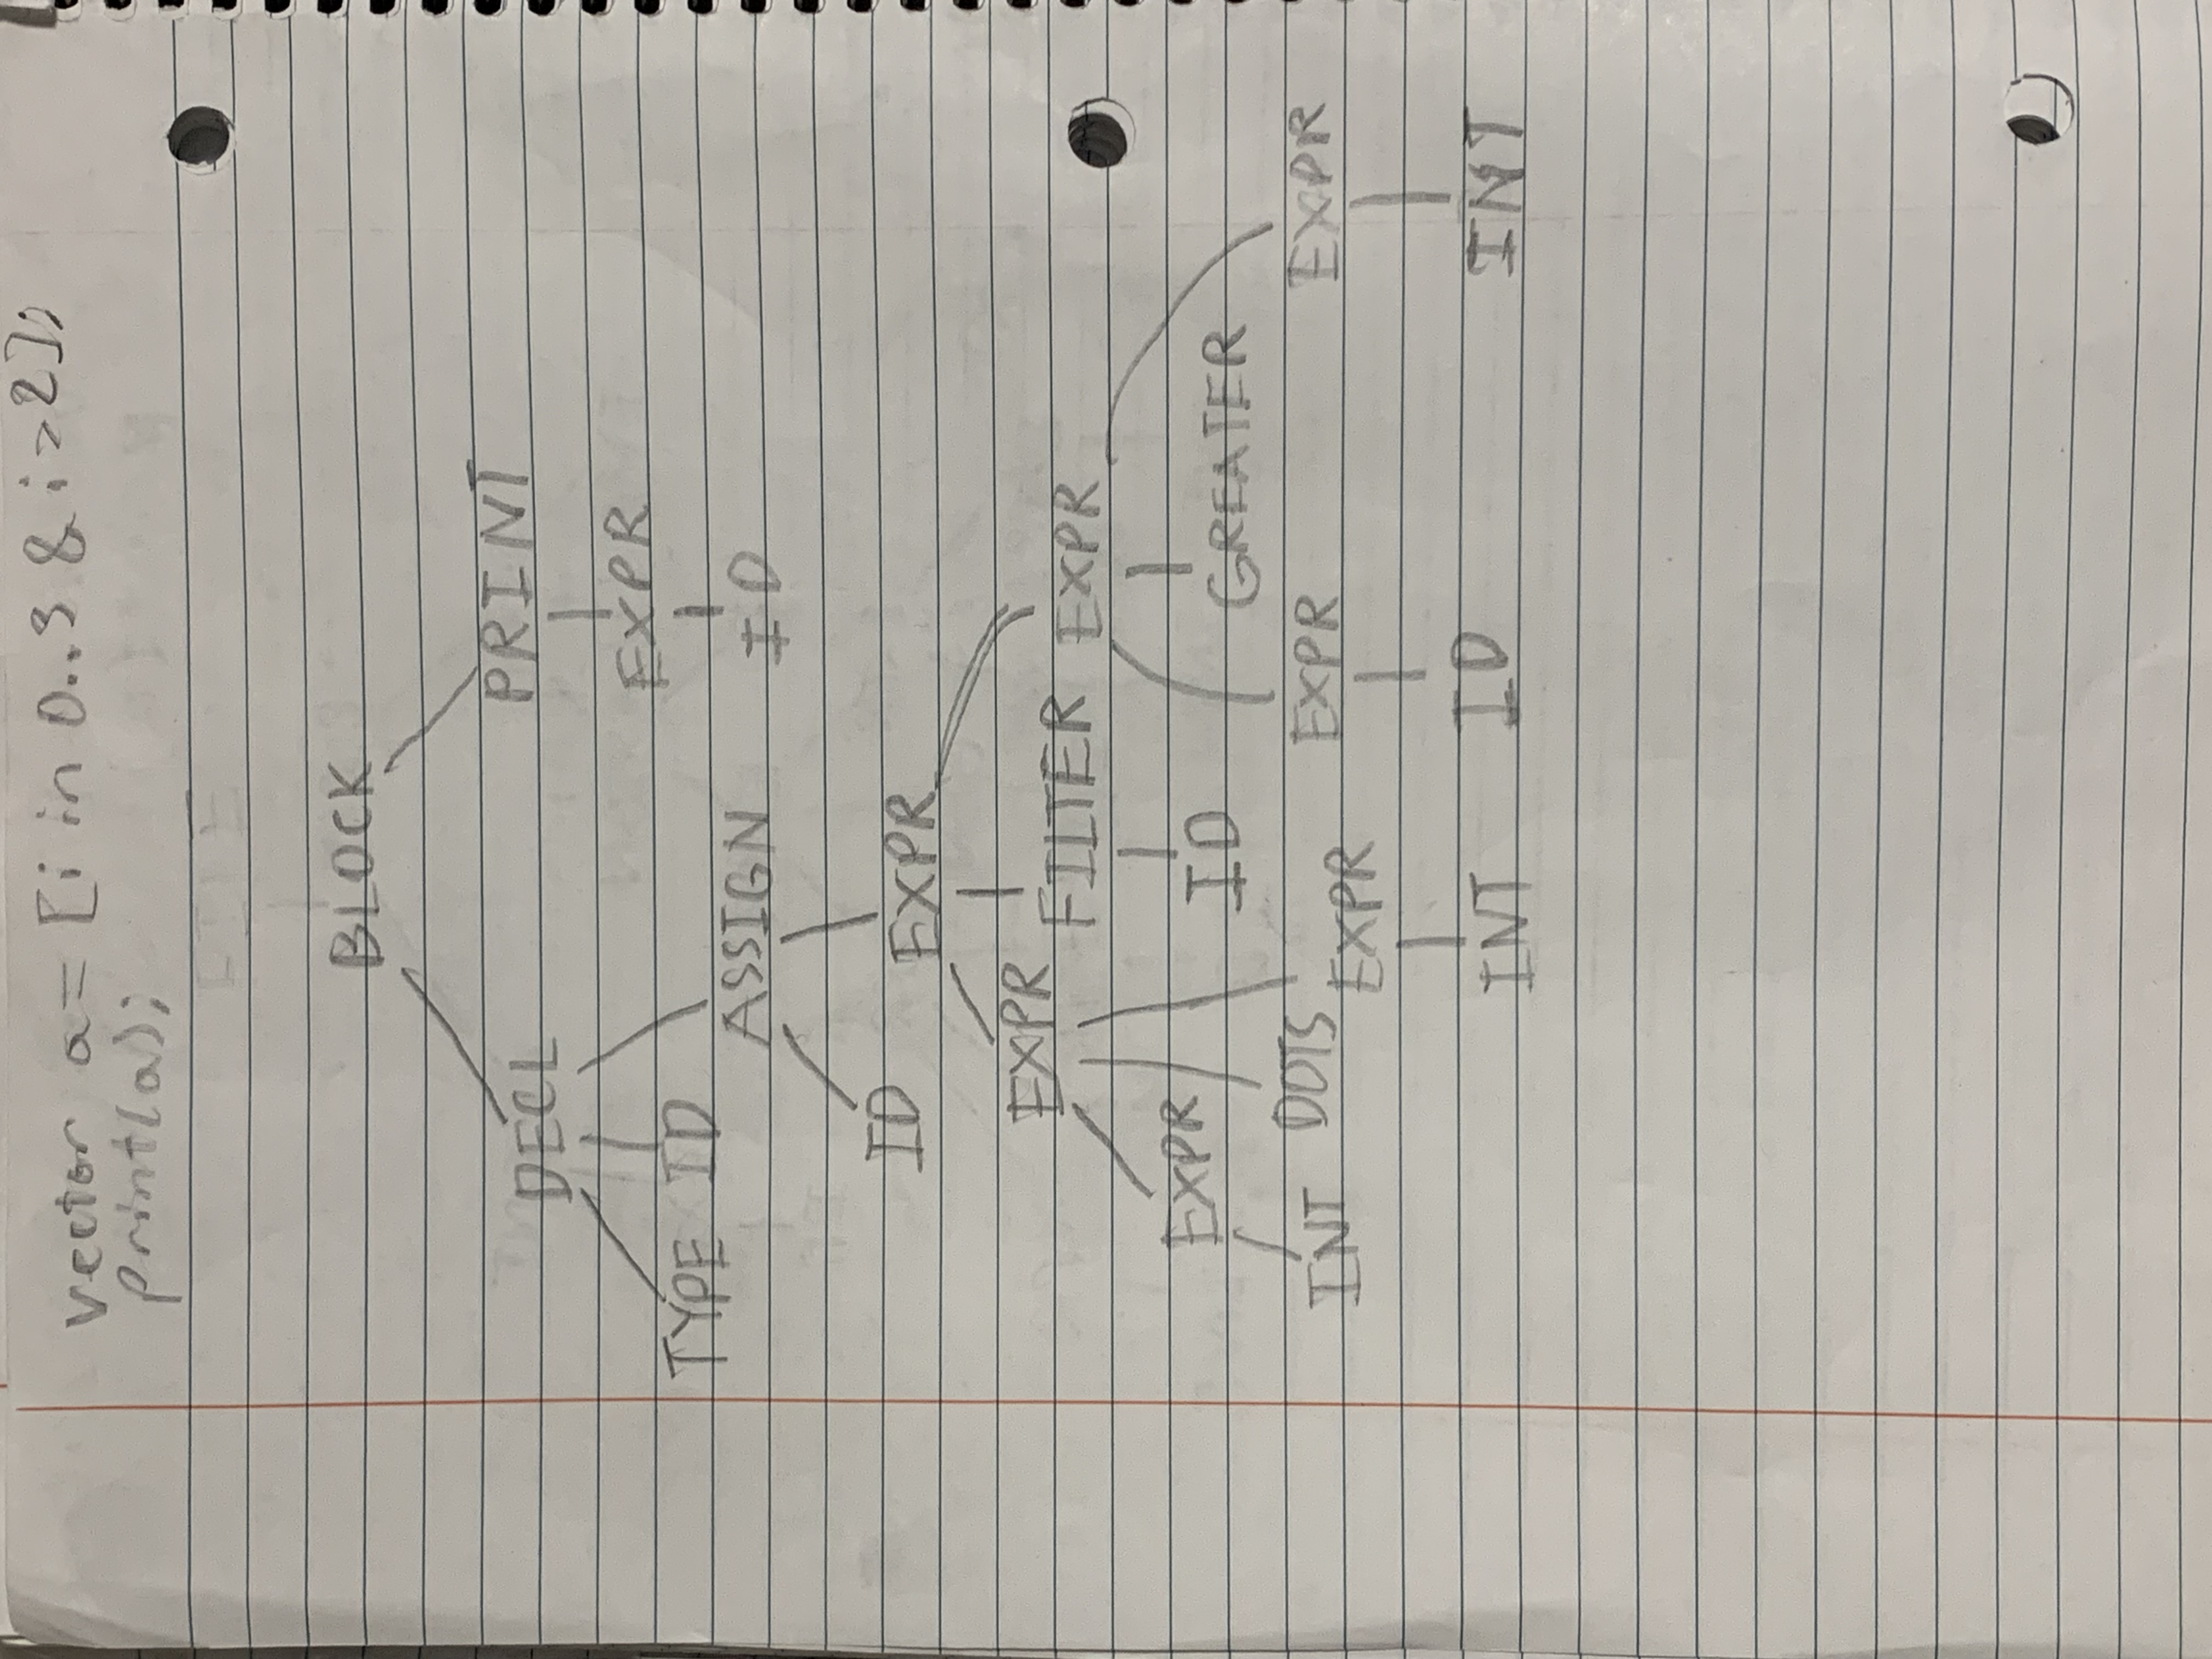 vector a = [i in 0..3 & i > 2];
print(a);
BLOCK
DECL PRINT
EXPR
TYPE ID ID
ASSIGN
ID EXPR
EXPR FILTER EXPR
EXPR ID GREATER
INT DOTS EXPR EXPR EXPR
INT ID INT